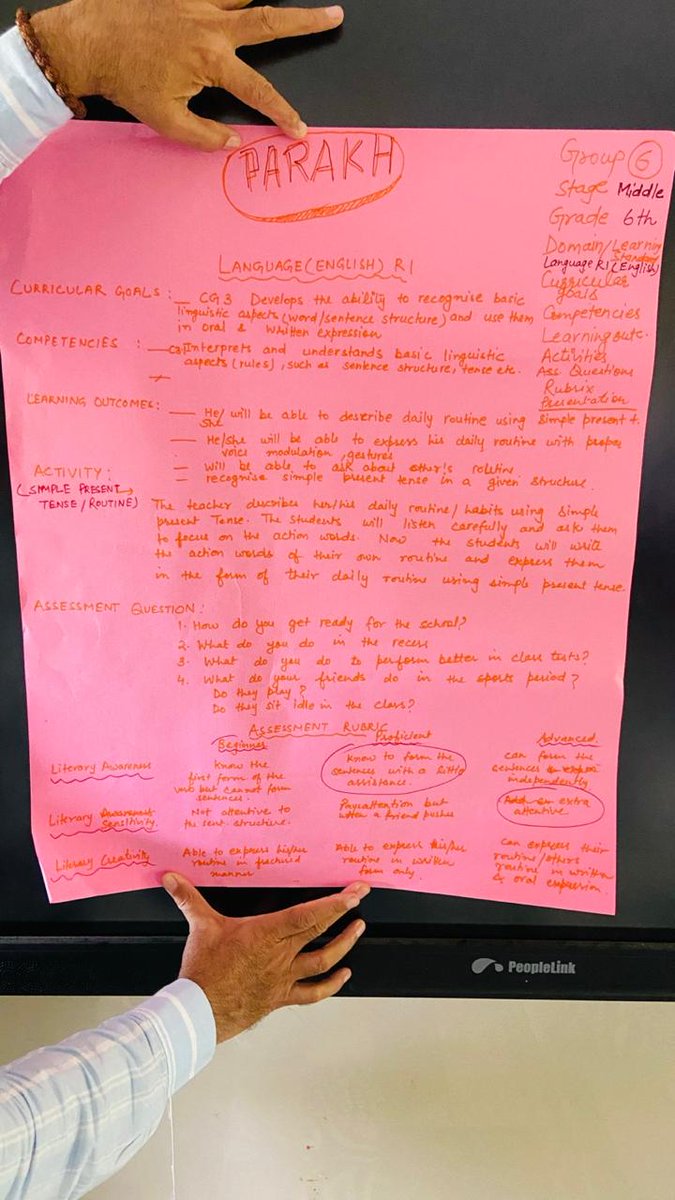 PARAKH
Group 6
Stage Middle
Grade 6th
Domain/Learning
Standard
Language R1 (English)
Curricular
goals
Competencies
Learning outc.
Activities
Ass. Questions
Rubrix
Presentation
LANGUAGE (ENGLISH) R1
CURRICULAR GOALS :
— CG 3 Develops the ability to recognise basic
linguistic aspects (word/sentence structure) and use them
in oral & written expression
COMPETENCIES :
— Interprets and understands basic linguistic
aspects (rules), such as sentence structure, tense etc.
LEARNING OUTCOMES :
— He/She will be able to describe daily routine using simple present t.
— He/She will be able to express his daily routine with proper
voice modulation, gestures
— will be able to ask about other's routine
— recognise simple present tense in a given structure.
ACTIVITY :
(SIMPLE PRESENT
TENSE / ROUTINE)
The teacher describes her/his daily routine/habits using simple
present Tense. The students will listen carefully and ask them
to focus on the action words. Now the students will write
the action words of their own routine and express them
in the form of their daily routine using simple present tense.
ASSESSMENT QUESTION :
1. How do you get ready for the school?
2. What do you do in the recess
3. What do you do to perform better in class tests?
4. What do your friends do in the sports period?
Do they play?
Do they sit idle in the class?
ASSESSMENT RUBRIC
Beginner Proficient Advanced
Literary Awareness
Know the
first form of the
verb but cannot form
sentences.
Know to form the
sentences with a little
assistance.
can form the
sentences
independently
Literary
Sensitivity
Not attentive to
the sent. structure.
Pay attention but
when a friend pushes
extra
attentive
Literary Creativity
Able to express his/her
routine in fractured
manner
Able to express his/her
routine in written
form only.
can express their
routine/others
routine in written
& oral expression.
PeopleLink